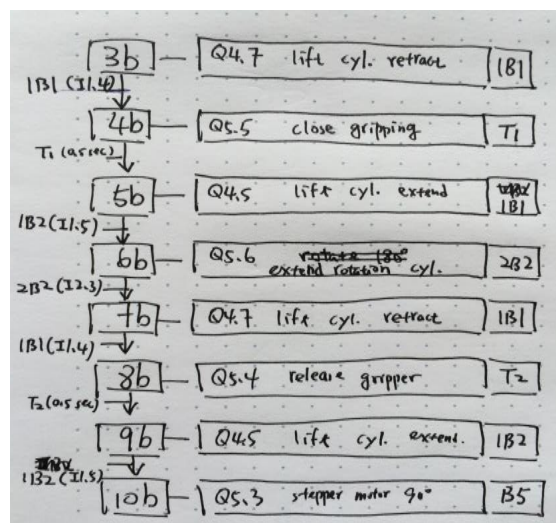 3b Q4.7 lift cyl. retract 1B1
1B1 (I1.4)
4b Q5.5 close gripping T1
T1 (0.5 sec)
5b Q4.5 lift cyl. extend 1B1
1B2 (I1.5)
6b Q5.6 rotate 180° extend rotation cyl. 2B2
2B2 (I2.3)
7b Q4.7 lift cyl. retract 1B1
1B1 (I1.4)
8b Q5.4 release gripper T2
T2 (0.5 sec)
9b Q4.5 lift cyl. extend. 1B2
1B2 (I1.5)
10b Q5.3 stepper motor 90° B5